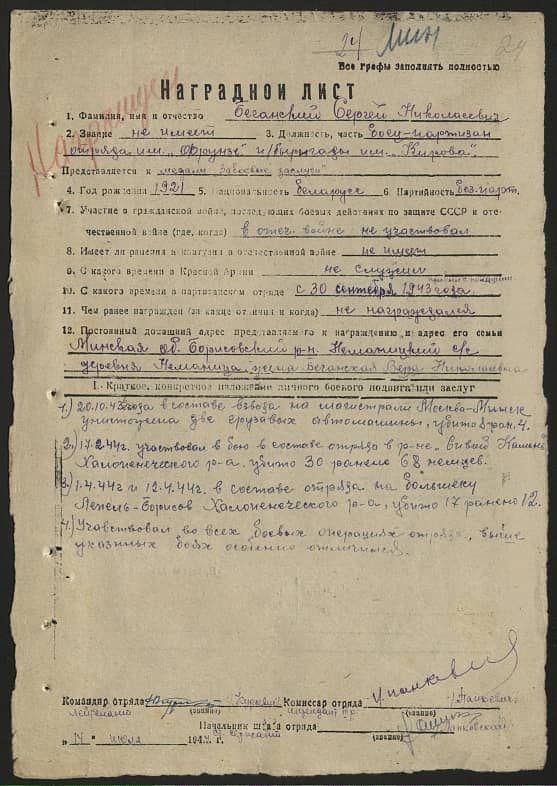 24 Мин 24
Все графы заполнять полностью
Наградной лист
1. Фамилия, имя и отчество Беганский Сергей Николаевич
2. Звание не имеет 3. Должность, часть боец-партизан
отряда им. „Фрунзе" п/бырыгады им. „Кирова".
Представляется к „медали За боевые заслуги"
4. Год рождения 1921 5. Национальность беларусс 6 Партийность безпарт.
7. Участие в гражданской войне, последующих боевых действиях по защите СССР и оте-
чественной войне (где, когда) в отеч. войне не участвовал
8. Имеет ли ранения и контузии в отечественной войне не имеет
9. С какого времени в Красной Армии не служил
10. С какого времени в партизанском отряде с 30 сентября 1943 года
11. Чем ранее награжден (за какие отличия и когда) не награждался
12. Постоянный домашний адрес представляемого к награждению и адрес его семьи
Минская об. Борисовский р-н. Неманицкий с/с
деревня Неманица жена Беганская Вера Николаевна
I. Краткое, конкретное изложение личного боевого подвига или заслуг
1.) 20.10.43 года в составе взвода на магистрали Москва-Минск
уничтожена две грузавых автомашины, убито 8 ран. 4.
2.) 17.2.44г. участвовал в бою в составе отряда в р-не
Халопенеческого р-а. убито 30 ранено 68 немцев.
3.) 1.4.44г и 12.4.44г. в составе отряда на большеку
Лепель-Борисов Халопенеческого р-а, убито 17 ранено 12.
4.) Учавствовал во всех боевых операциях отряда, выше
указных боях особенно отличился.
Командир отряда Комиссар отряда
лейтенант (звание) (звание)
Начальник штаба отряда
„14" июля 1944 г. (звание)